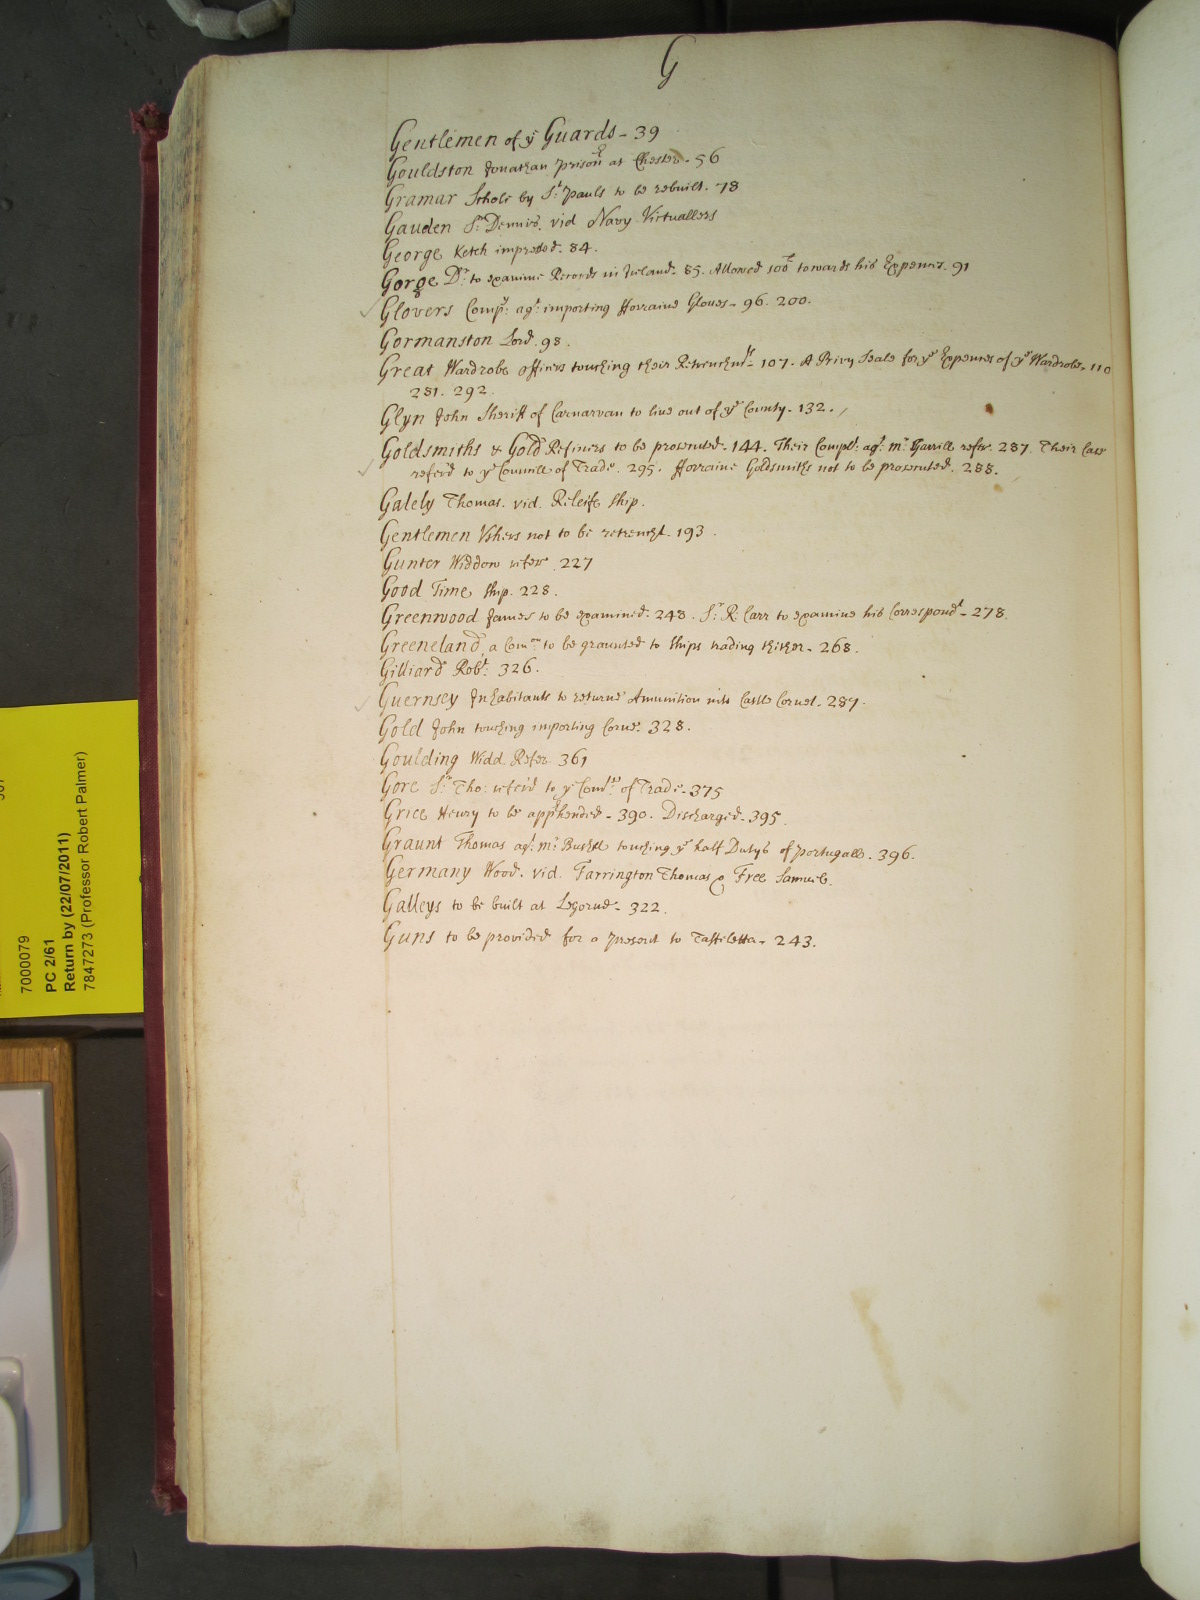 G
Gentlemen of yͤ Guards - 39
Gouldston Jonathan prisonʳ at Chester - 56
Gramar Schole by Sᵗ: Pauls to be rebuilt. 78
Gauden Sʳ: Dennis. vid Navy Victuallers
George Ketch impressed. 84.
Gorge Dʳ to examine Records in Ireland. 85. Allowed 100ˡ towards his Expences. 91
Glovers Compʸ: agᵗ: importing fforraine Gloves - 96. 200.
Gormanston Lord. 98.
Great Wardrobe officers touching their Retrenchmᵗ - 107. A Privy Seale for yᵉ Expences of yᵉ Wardrobe - 110
281. 292.
Glyn John Sheriff of Carnarvan to live out of yᵉ County - 132.
Goldsmiths & Gold Refiners to be prosecuted - 144. Their Complᵗ: agᵗ: mʳ: Garrill refer. 287. Their Case
referd to yᵉ Councill of Trade. 295. fforraine Goldsmiths not to be prosecuted. 288.
Gately Thomas. vid. Releife Ship.
Gentlemen Vshers not to be retrencht. 193.
Gunter Widdow refer. 227
Good Time Ship. 228.
Greenwood James to be examined. 248. Sʳ R: Carr to examine his Correspondᵗ - 278.
Greeneland, a Comᵒⁿ to be graunted to Ships trading thither - 268.
Gilliard Robᵗ: 326.
Guernsey Inhabitants to returne Amunition into Castle Cornet. 289.
Gold John touching importing Corne. 328.
Goulding Widd. Refer. 361
Gore Sʳ Tho: referd to yᵉ Comʳˢ of Trade - 375
Grice Henry to be apprhended - 390. Discharged - 395.
Graunt Thomas agᵗ: mʳ: Bushel touching yᵉ half Dutys of Portugall - 396.
Germany Wood. vid. Farrington Thomas & Free Samuel.
Galleys to be built at Legorne - 322.
Guns to be provided for a present to Taffiletta - 243.
7000079
PC 2/61
Return by (22/07/2011)
7847273 (Professor Robert Palmer)